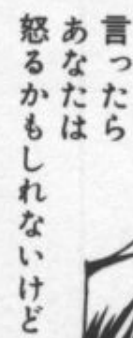 言ったら
あなたは
怒るかもしれないけど